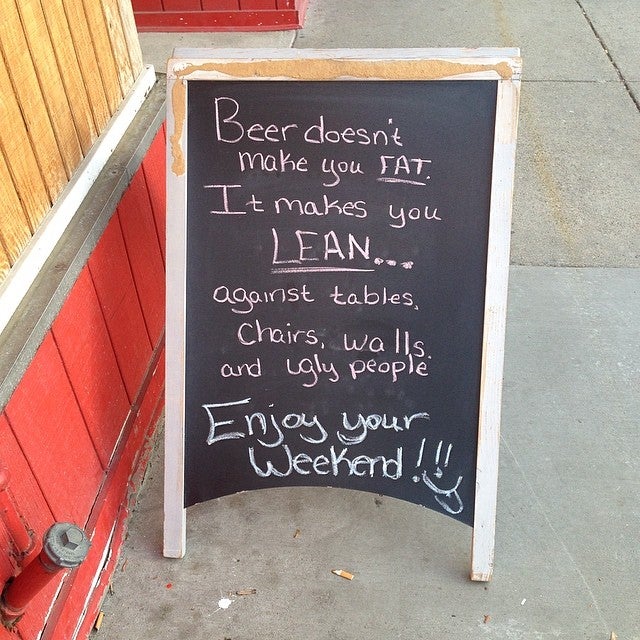 Beer doesn't
make you FAT.
It makes you
LEAN...
against tables,
Chairs, walls,
and ugly people
Enjoy your
Weekend!!!